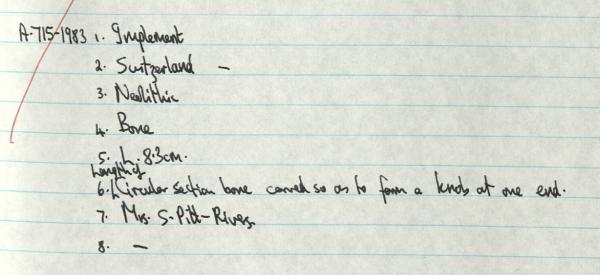 A-715-1983 1. Implement
2. Switzerland -
3. Neolithic
4. Bone
5. L. 8.3cm.
Length of
6. Circular section bone carved so as to form a knob at one end.
7. Mrs. S. Pitt-Rivers
8. -